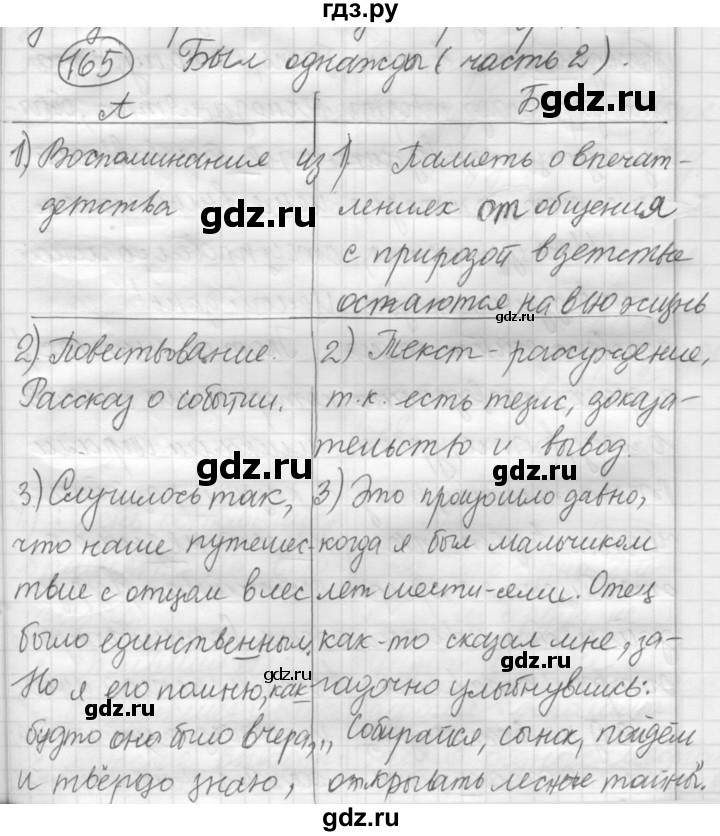 гдз.ру
165 Был однажды (часть 2).
А Б
gdz.ru
1) Воспоминания из
детства
gdz.ru
1) Память о впечат-
лениях от общения
с природой в детстве
остаются на всю жизнь
gdz.ru
2) Повествование.
Рассказ о событии.
2) Текст-рассуждение,
т.к. есть тезис, доказа-
тельство и вывод.
gdz.ru
3) Случилось так,
что наше путешес-
твие с отцом в лес
было единственным.
Но я его помню, как
будто оно было вчера,
и твёрдо знаю,
gdz.ru
3) Это произошло давно,
когда я был мальчиком
лет шести-семи. Отец
как-то сказал мне, за-
гадочно улыбнувшись:
„Собирайся, сынок, пойдём
открывать лесные тайны".
gdz.ru
gdz.ru
gdz.ru
gdz.ru